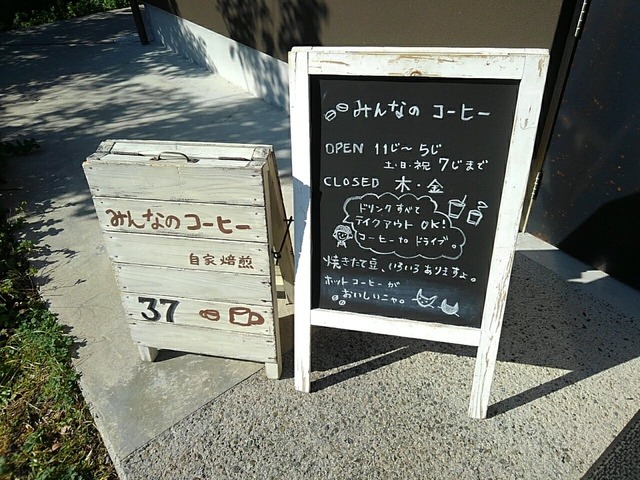 みんなの コーヒー
自家焙煎
37
みんなの コーヒー
OPEN 11じ〜5じ
土・日・祝 7じまで
CLOSED 木・金
ドリンクすべて
テイクアウト OK!
コーヒー to ドライブ。
焼きたて豆、いろいろありますよ。
ホットコーヒーが
おいしいニャ。